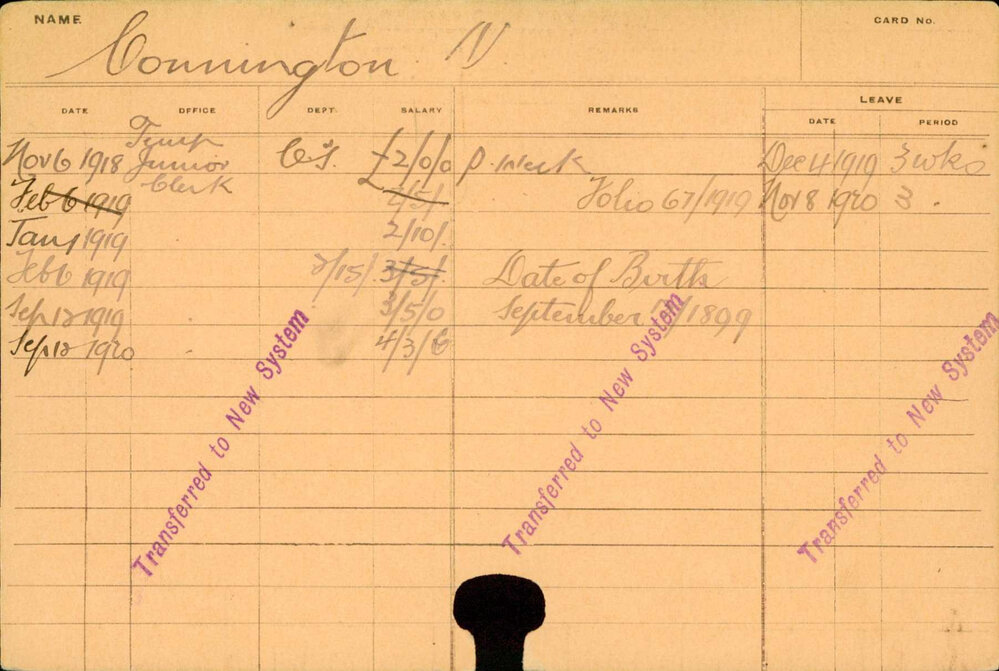 NAME
CARD No.
Connington N
DATE OFFICE DEPT. SALARY REMARKS LEAVE
DATE PERIOD
Nov 6 1918 Temp Junior Clerk C's. £2/0/0 p. week Dec 4 1919 3 wks
Feb 6 1919 2/5/- Folio 67/1919 Nov 8 1920 3 .
Jan 1 1919 2/10/-
Feb 6 1919 2/15/- 3/5/- Date of Birth
Sep 12 1919 3/5/0 September /1899
Sep 12 1920 4/3/6
Transferred to New System
Transferred to New System
Transferred to New System